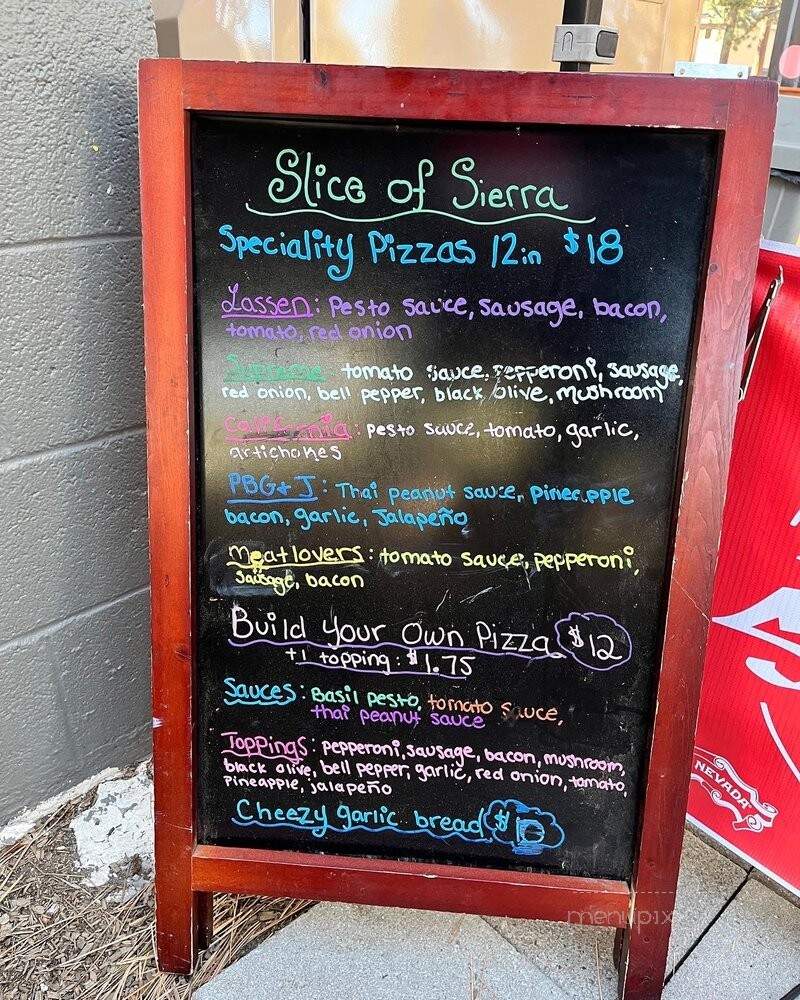 Slice of Sierra
Speciality Pizzas 12in $18
Lassen: Pesto sauce, sausage, bacon,
tomato, red onion
Supreme: tomato sauce, pepperoni, sausage,
red onion, bell pepper, black olive, mushroom
California: pesto sauce, tomato, garlic,
artichokes
PBG+J: Thai peanut sauce, pineapple
bacon, garlic, Jalapeño
Meatlovers: tomato sauce, pepperoni,
sausage, bacon
Build your Own Pizza $12
+1 topping: $1.75
Sauces: Basil pesto, tomato sauce,
thai peanut sauce
Toppings: pepperoni, sausage, bacon, mushroom,
black olive, bell pepper, garlic, red onion, tomato,
pineapple, jalapeño
Cheezy garlic bread $10
NEVADA
menupix